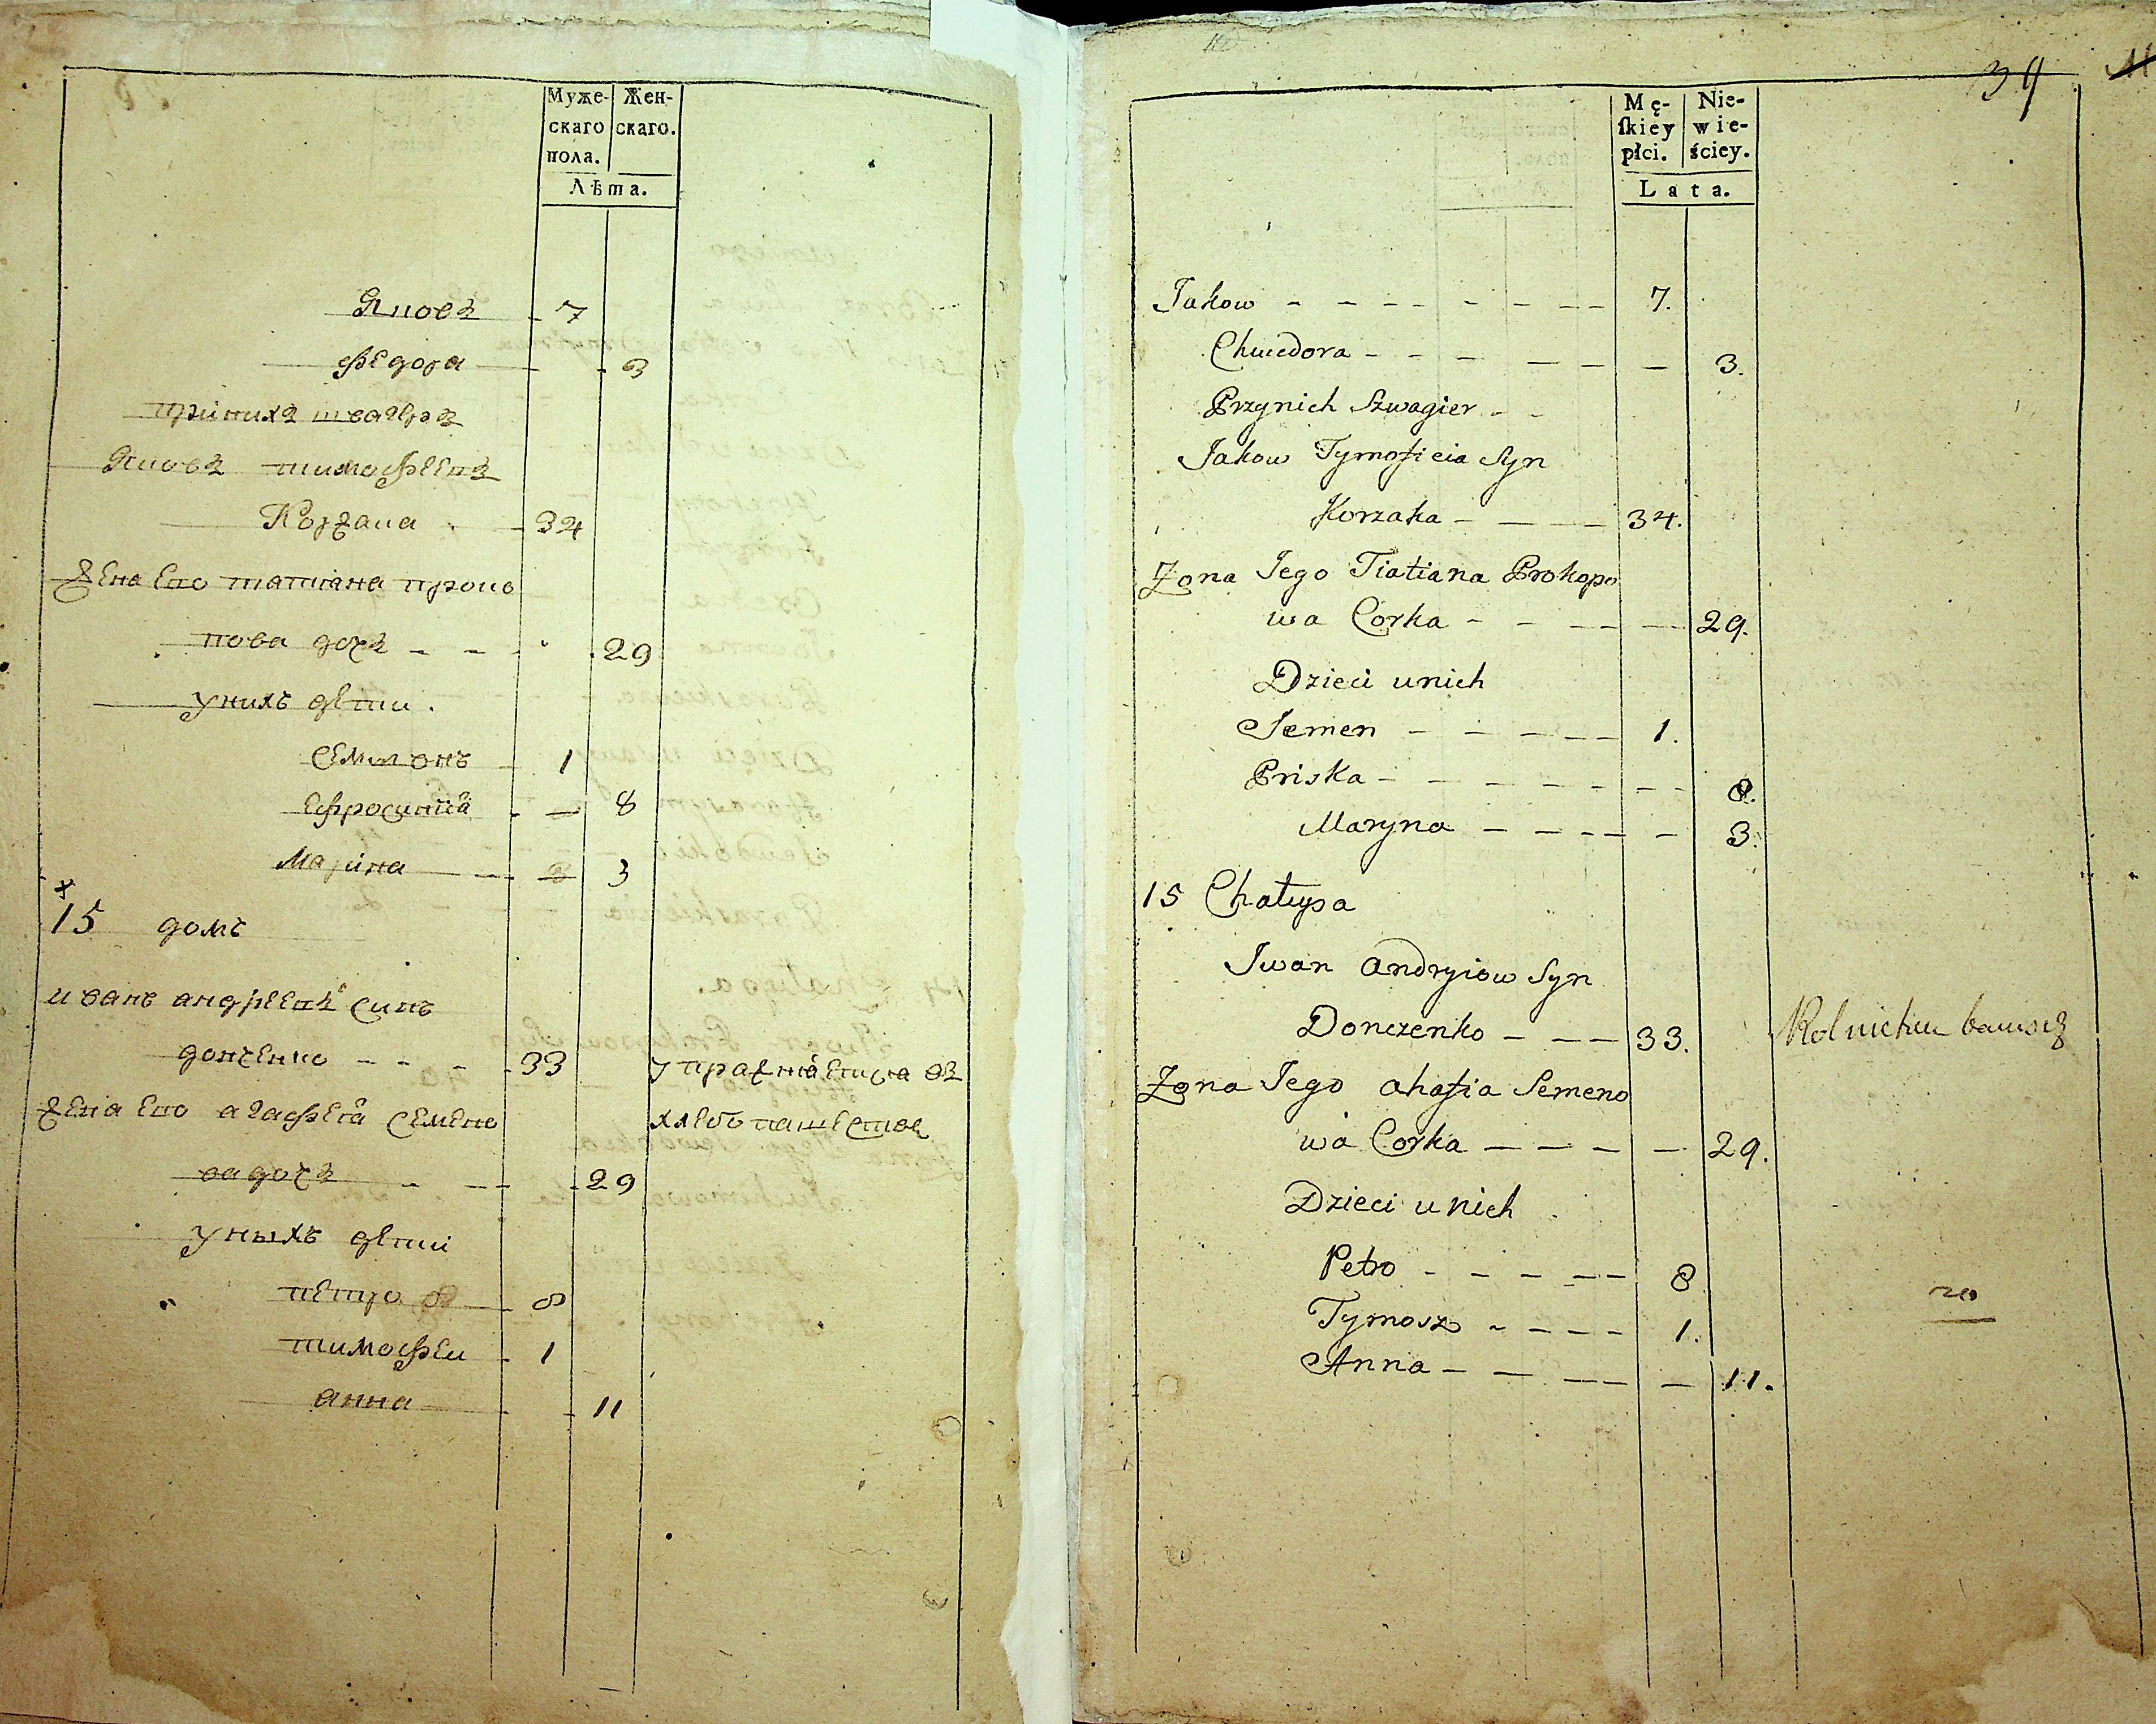 Муже-
скаго
пола.
Жен-
скаго.
Лѣта.
Яковъ - 7
Федора - - 3
при нихъ швагръ
Яковъ тимофеевъ
Коржака - 34
жена его татіана проко
пова дочь - - - 29
у нихъ дети.
Семионъ - 1
Ефросиніа - - 8
Маріна - - 3
15 домъ
иванъ андреевъ синъ
донченко - - - 33
упражнаетца въ
жена его агафеа Семено
хлебопашестве
ва дочь - - - 29
у ныхъ дети
петро 8
тимофеи - 1
анна - 11
39
Mę-
skiey
płci.
Nie-
wie-
ściey.
Lata.
Jakow - - - - - - - - 7.
Chwedora - - - - - - 3.
Przynich Szwagier - -
Jakow Tymofieia Syn
Korzaka - - - 34.
Zona Jego Tiatiana Prokopo
wa Corka - - - - - 29.
Dzieci unich
Semen - - - - - 1.
Priska - - - - - - - - 8.
Maryna - - - - - 3.
15 Chałupa
Jwan Andryiow Syn
Donczenko - - - 33.
Zona Jego Ahafia Semeno
wa Corka - - - - 29.
Dzieci u nich
Petro - - - - - 8
Tymosz - - - - 1.
Anna - - - - - 11.